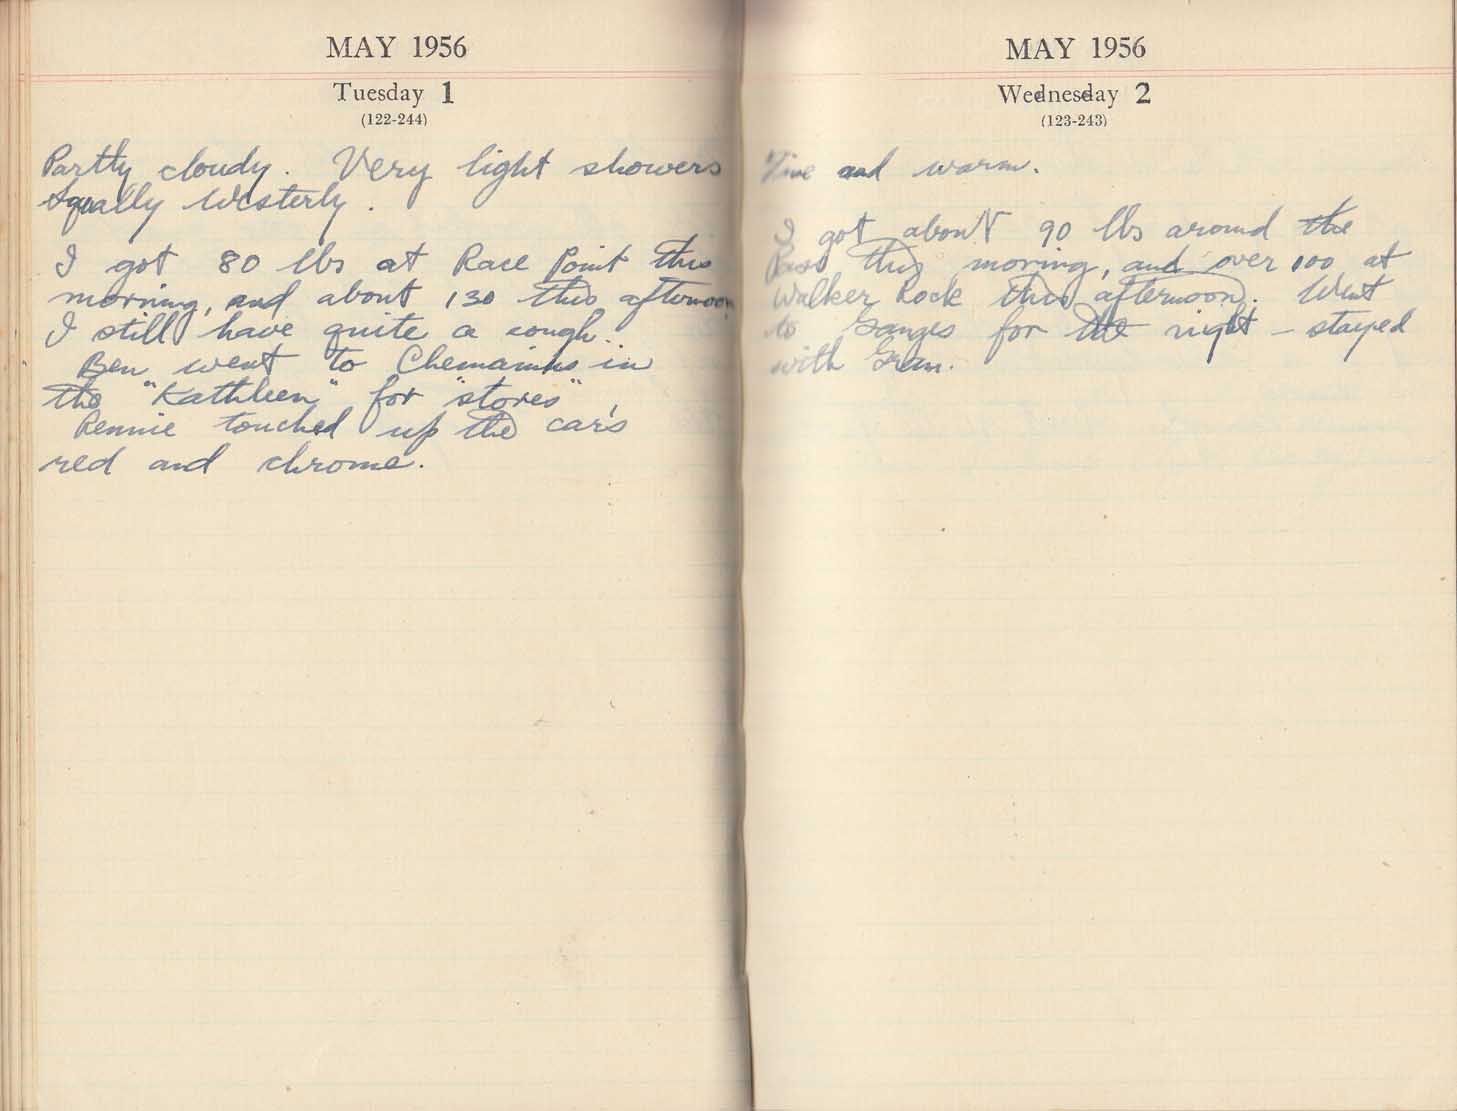 MAY 1956
Tuesday 1
(122-244)
Partly cloudy. Very light showers
Squally Westerly.
I got 80 lbs at Race Point this
morning, and about 130 this afternoon
I still have quite a cough.
Ben went to Chemainus in
the "Kathleen" for "stores".
Rennie touched up the car's
red and chrome.
MAY 1956
Wednesday 2
(123-243)
Fine and warm.
I got about 90 lbs around the
Pass this morning, and over 100 at
Walker Rock this afternoon. Went
to Ganges for the night – stayed
with Gran.